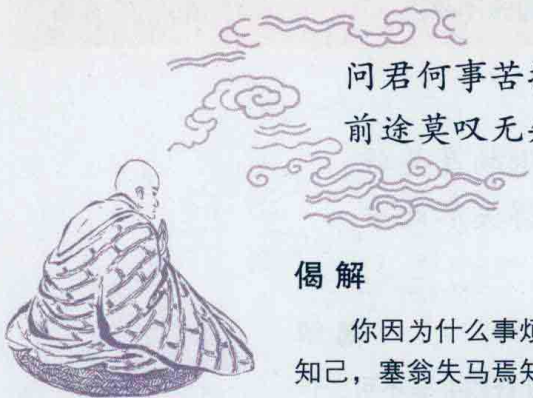 问君何事苦
前途莫叹无
偈解
你因为什么事烦
知己，塞翁失马焉知